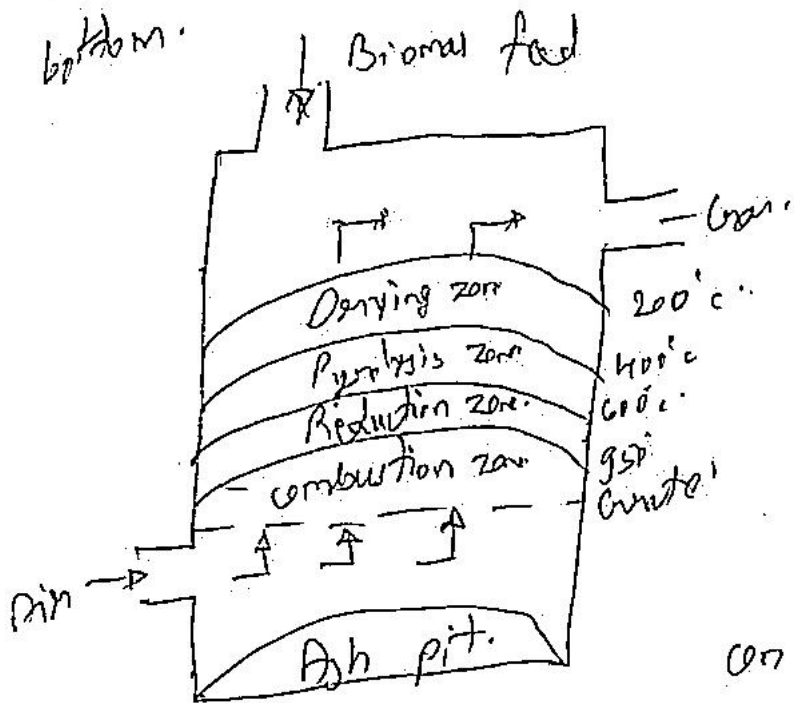 bottom.
Biomas feed
Gas.
Drying zone
200°c.
Pyrolysis zone
400°c
Reduction zone.
600c.
combustion zone
950°
Grate
Air
Ash pit.
on